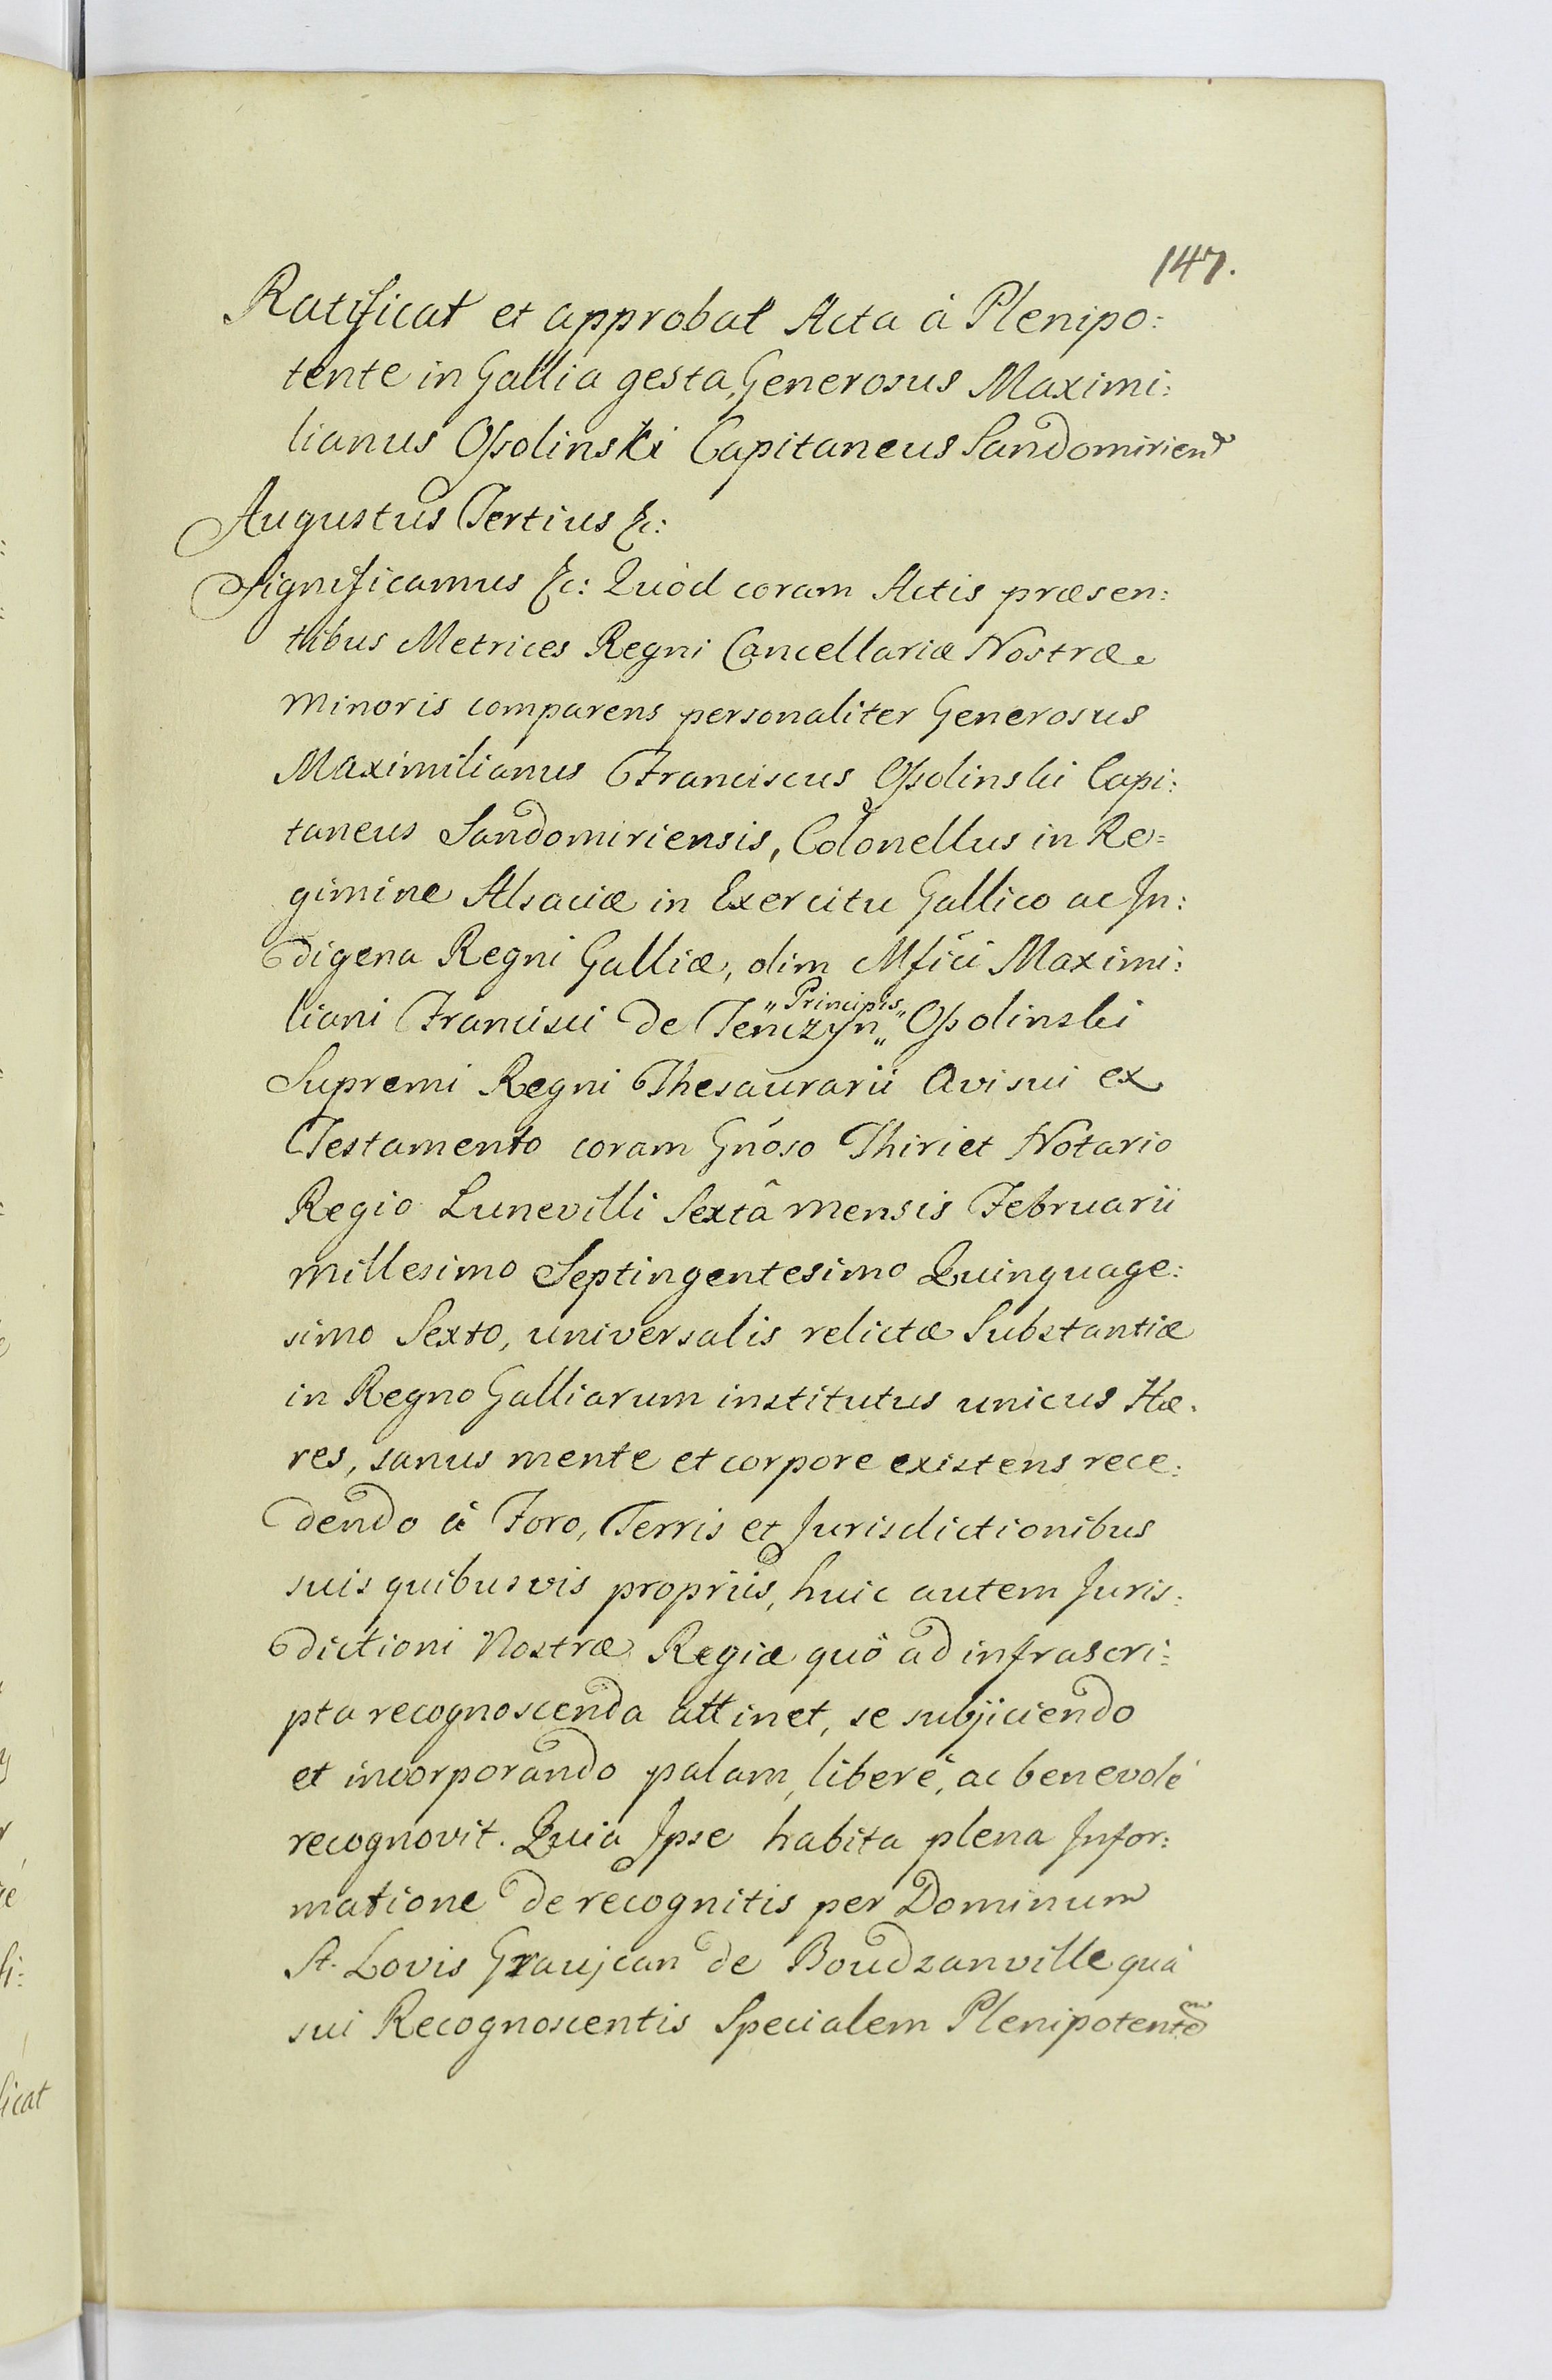 147.
Ratificat et approbat Acta à Plenipo:
tente in Gallia gesta, Generosus Maximi:
lianus Ossolinski Capitaneus Sandomirien
Augustus Tertius &c:
Significamus &c: Quòd coram Actis præsen:
tibus Metrices Regni Cancellariæ Nostræ
Minoris comparens personaliter Generosus
Maximilianus Franciscus Ossolinski Capi:
taneus Sandomiriensis, Colonellus in Re=
gimine Alsaciæ in Exercitu Gallico ac In:
digena Regni Galliæ, olim Mfici Maximi:
"Principis"
liani Francisci de Tenczyn„ Ossolinski
Supremi Regni Thesaurarii Avi sui ex
Testamento coram Gnoso Thiriet Notario
Regio Lunevilli Sextâ mensis Februarii
millesimo Septingentesimo Quinquage:
simo Sexto, universalis relictæ Substantiæ
in Regno Galliarum institutus unicus Hæ:
res, sanus mente et corpore existens rece:
dendo à Foro, Terris et Jurisdictionibus
suis quibusvis propriis, huic autem Juris:
dictioni Nostræ Regiæ quò ad infrascri:
pta recognoscenda attinet, se subjiciendo
et incorporando palam, liberè, ac benevolè
recognovit. Quia Ipse habita plena Infor:
matione de recognitis per Dominum
St. Lovis Graujean de Boudzanville quà
sui Recognoscentis Specialem Plenipotente͠m